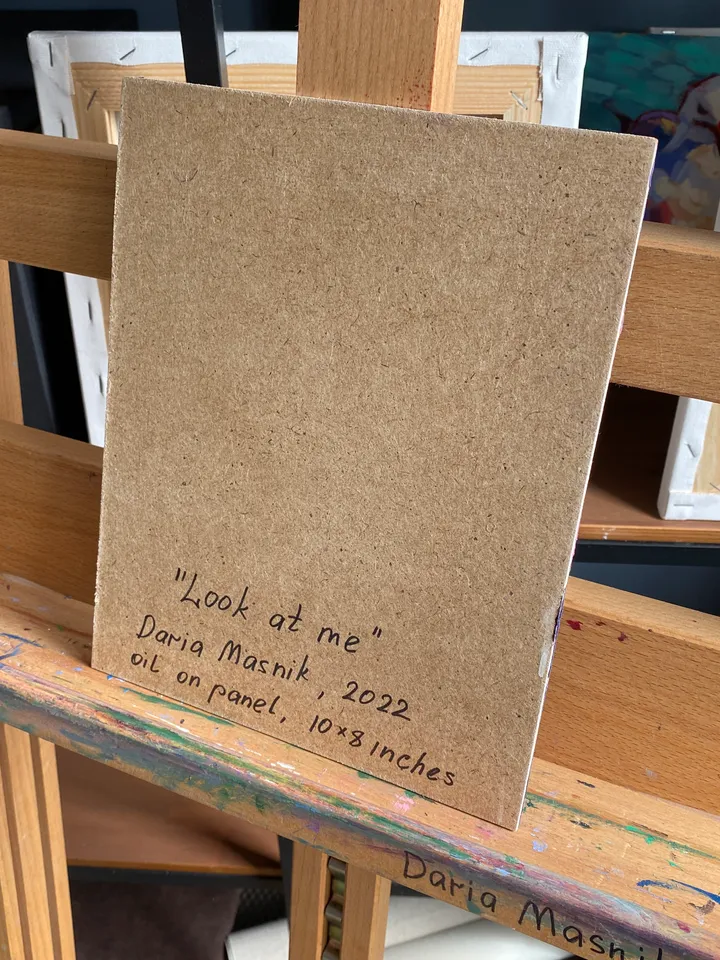 "Look at me"
Daria Masnik, 2022
oil on panel, 10×8 inches
Daria Masnik